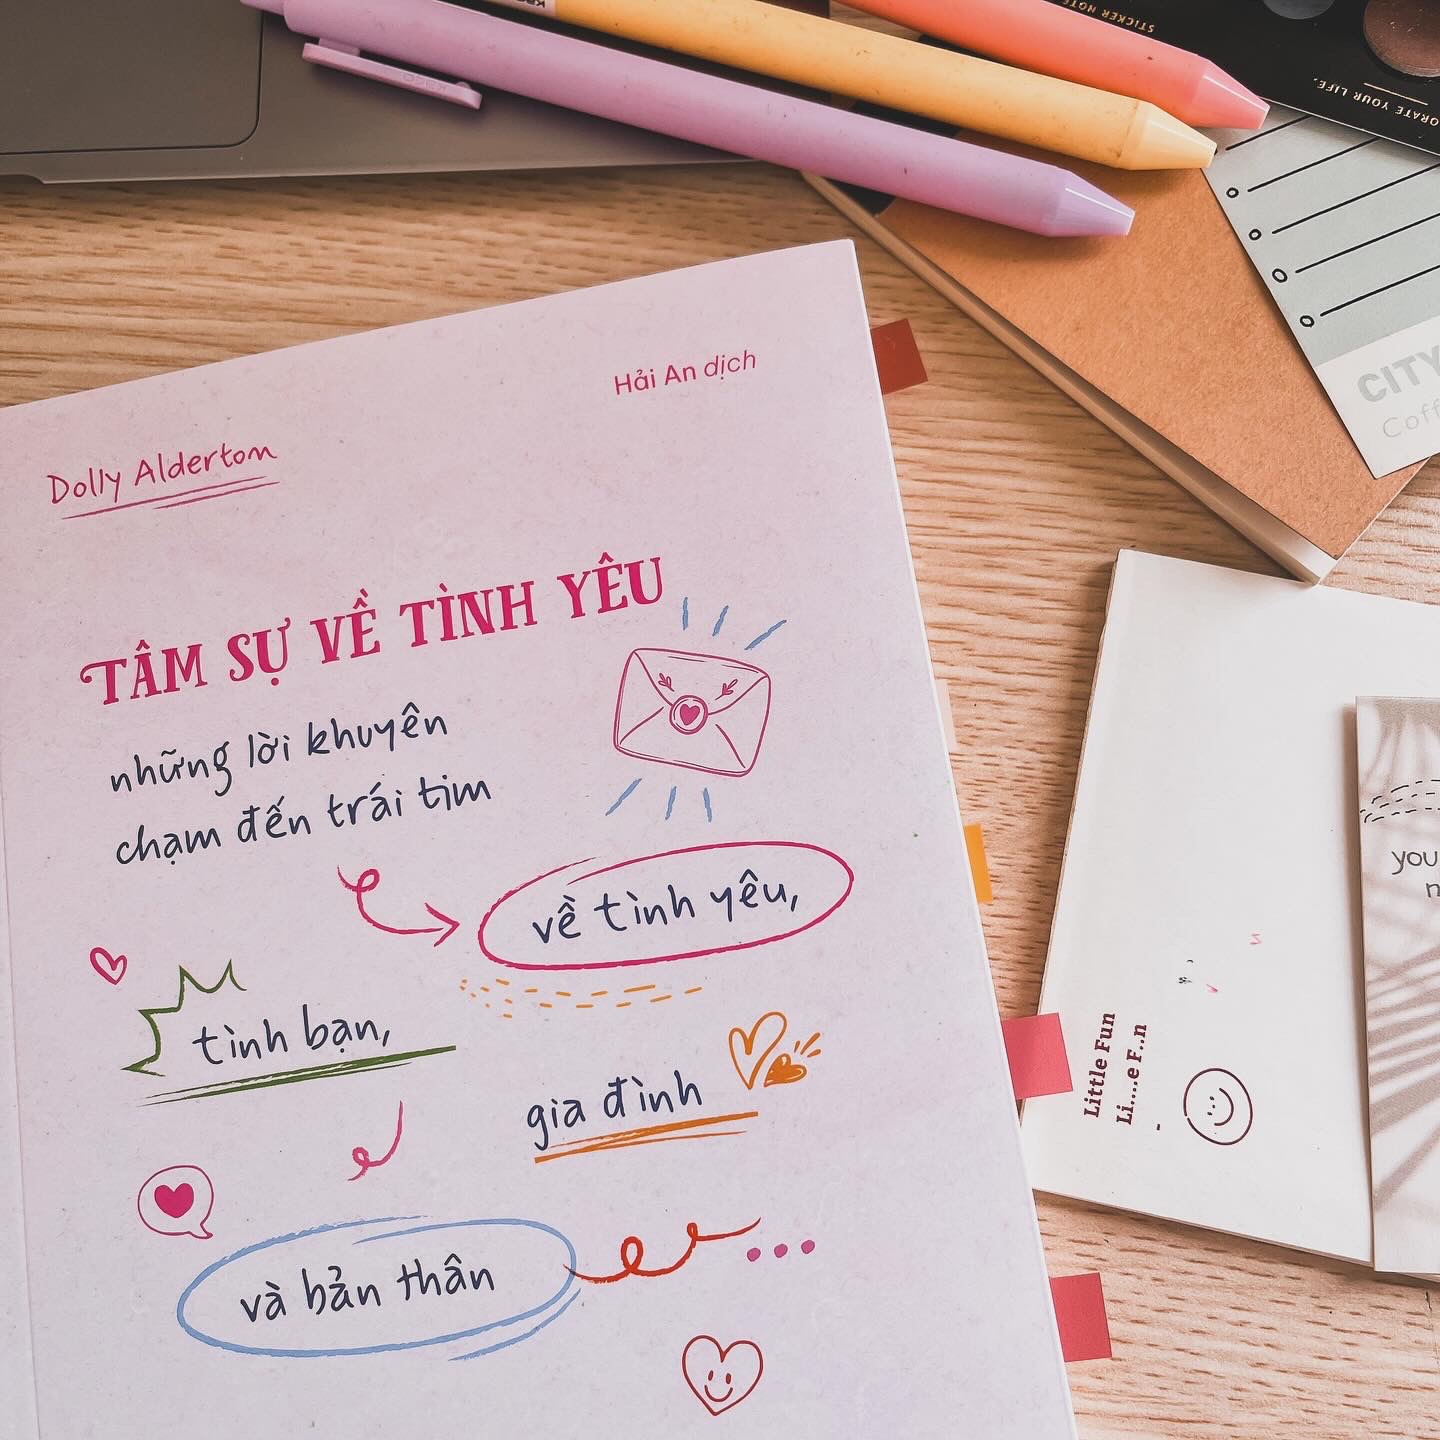 STICKER NOTE
ORATE YOUR LIFE.
CITY
Coff
Hải An dịch
Dolly Alderton
TÂM SỰ VỀ TÌNH YÊU
những lời khuyên
chạm đến trái tim
về tình yêu,
tình bạn,
gia đình
và bản thân
...
you
n
Little Fun
Li....e F..n
-